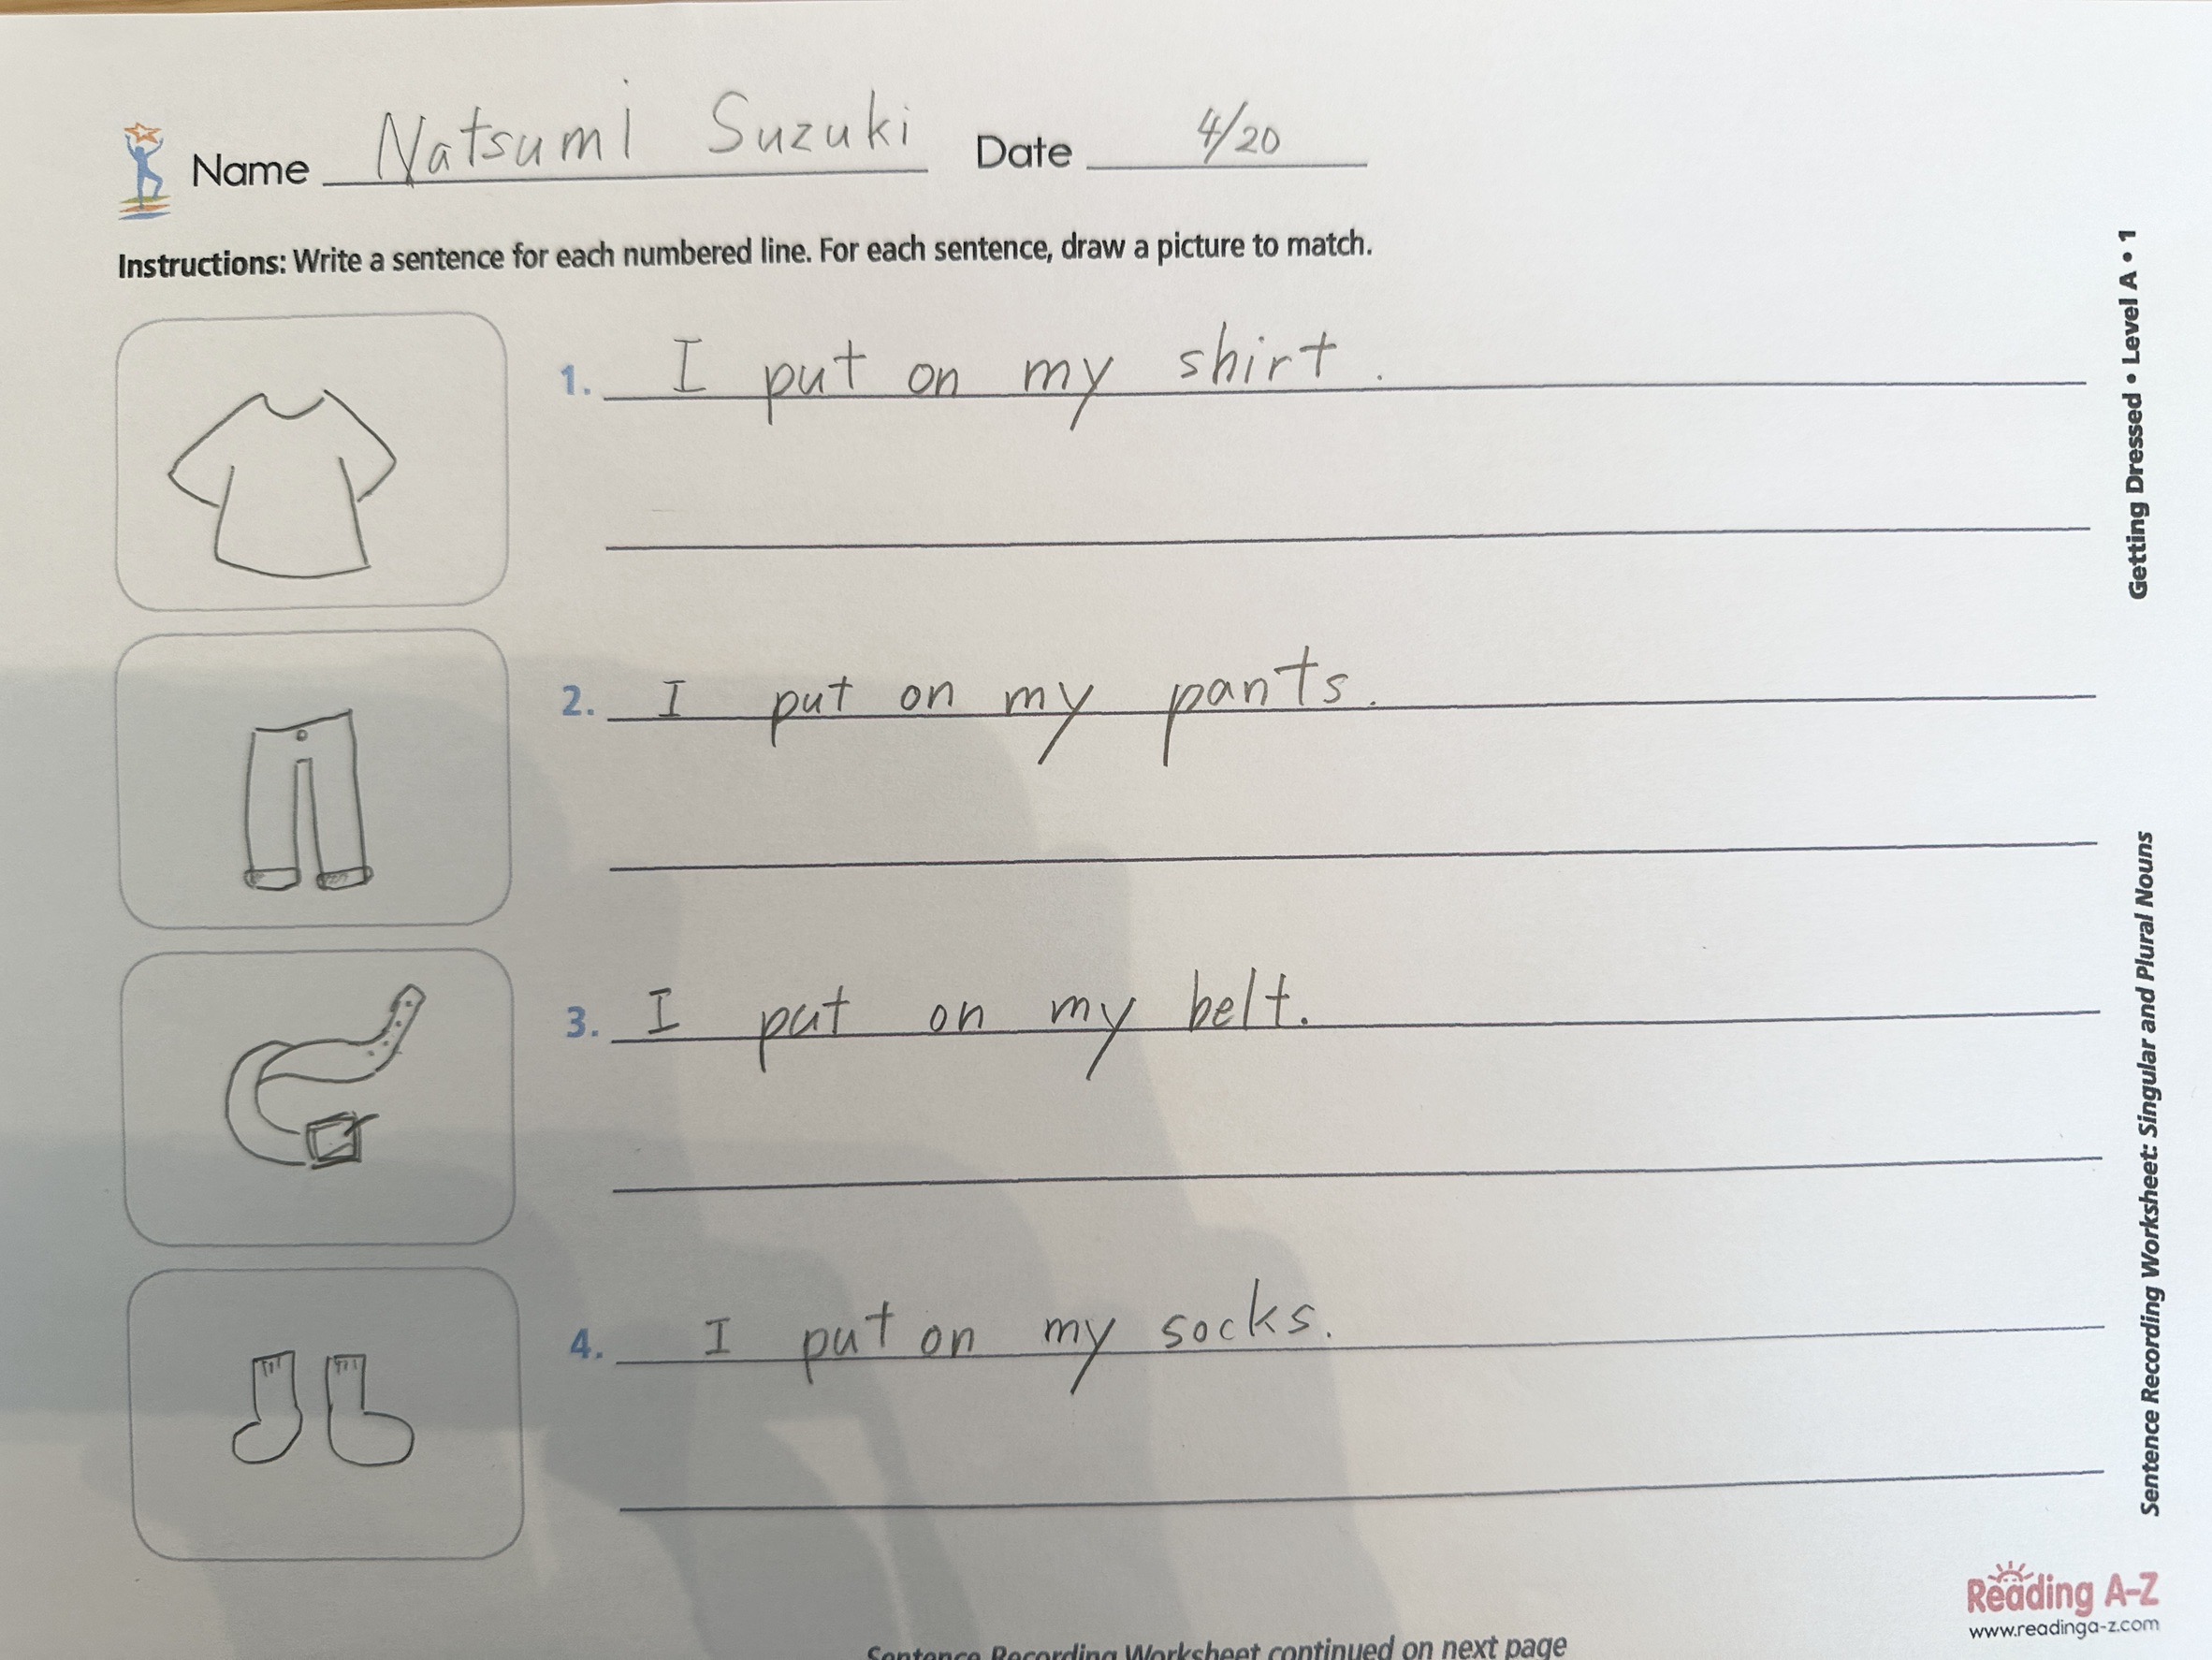 Name Natsumi Suzuki Date 4/20
Instructions: Write a sentence for each numbered line. For each sentence, draw a picture to match.
1. I put on my shirt.
2. I put on my pants.
3. I put on my belt.
4. I put on my socks.
Getting Dressed • Level A • 1
Sentence Recording Worksheet: Singular and Plural Nouns
Reading A–Z
www.readinga-z.com
Sentence Recording Worksheet continued on next page